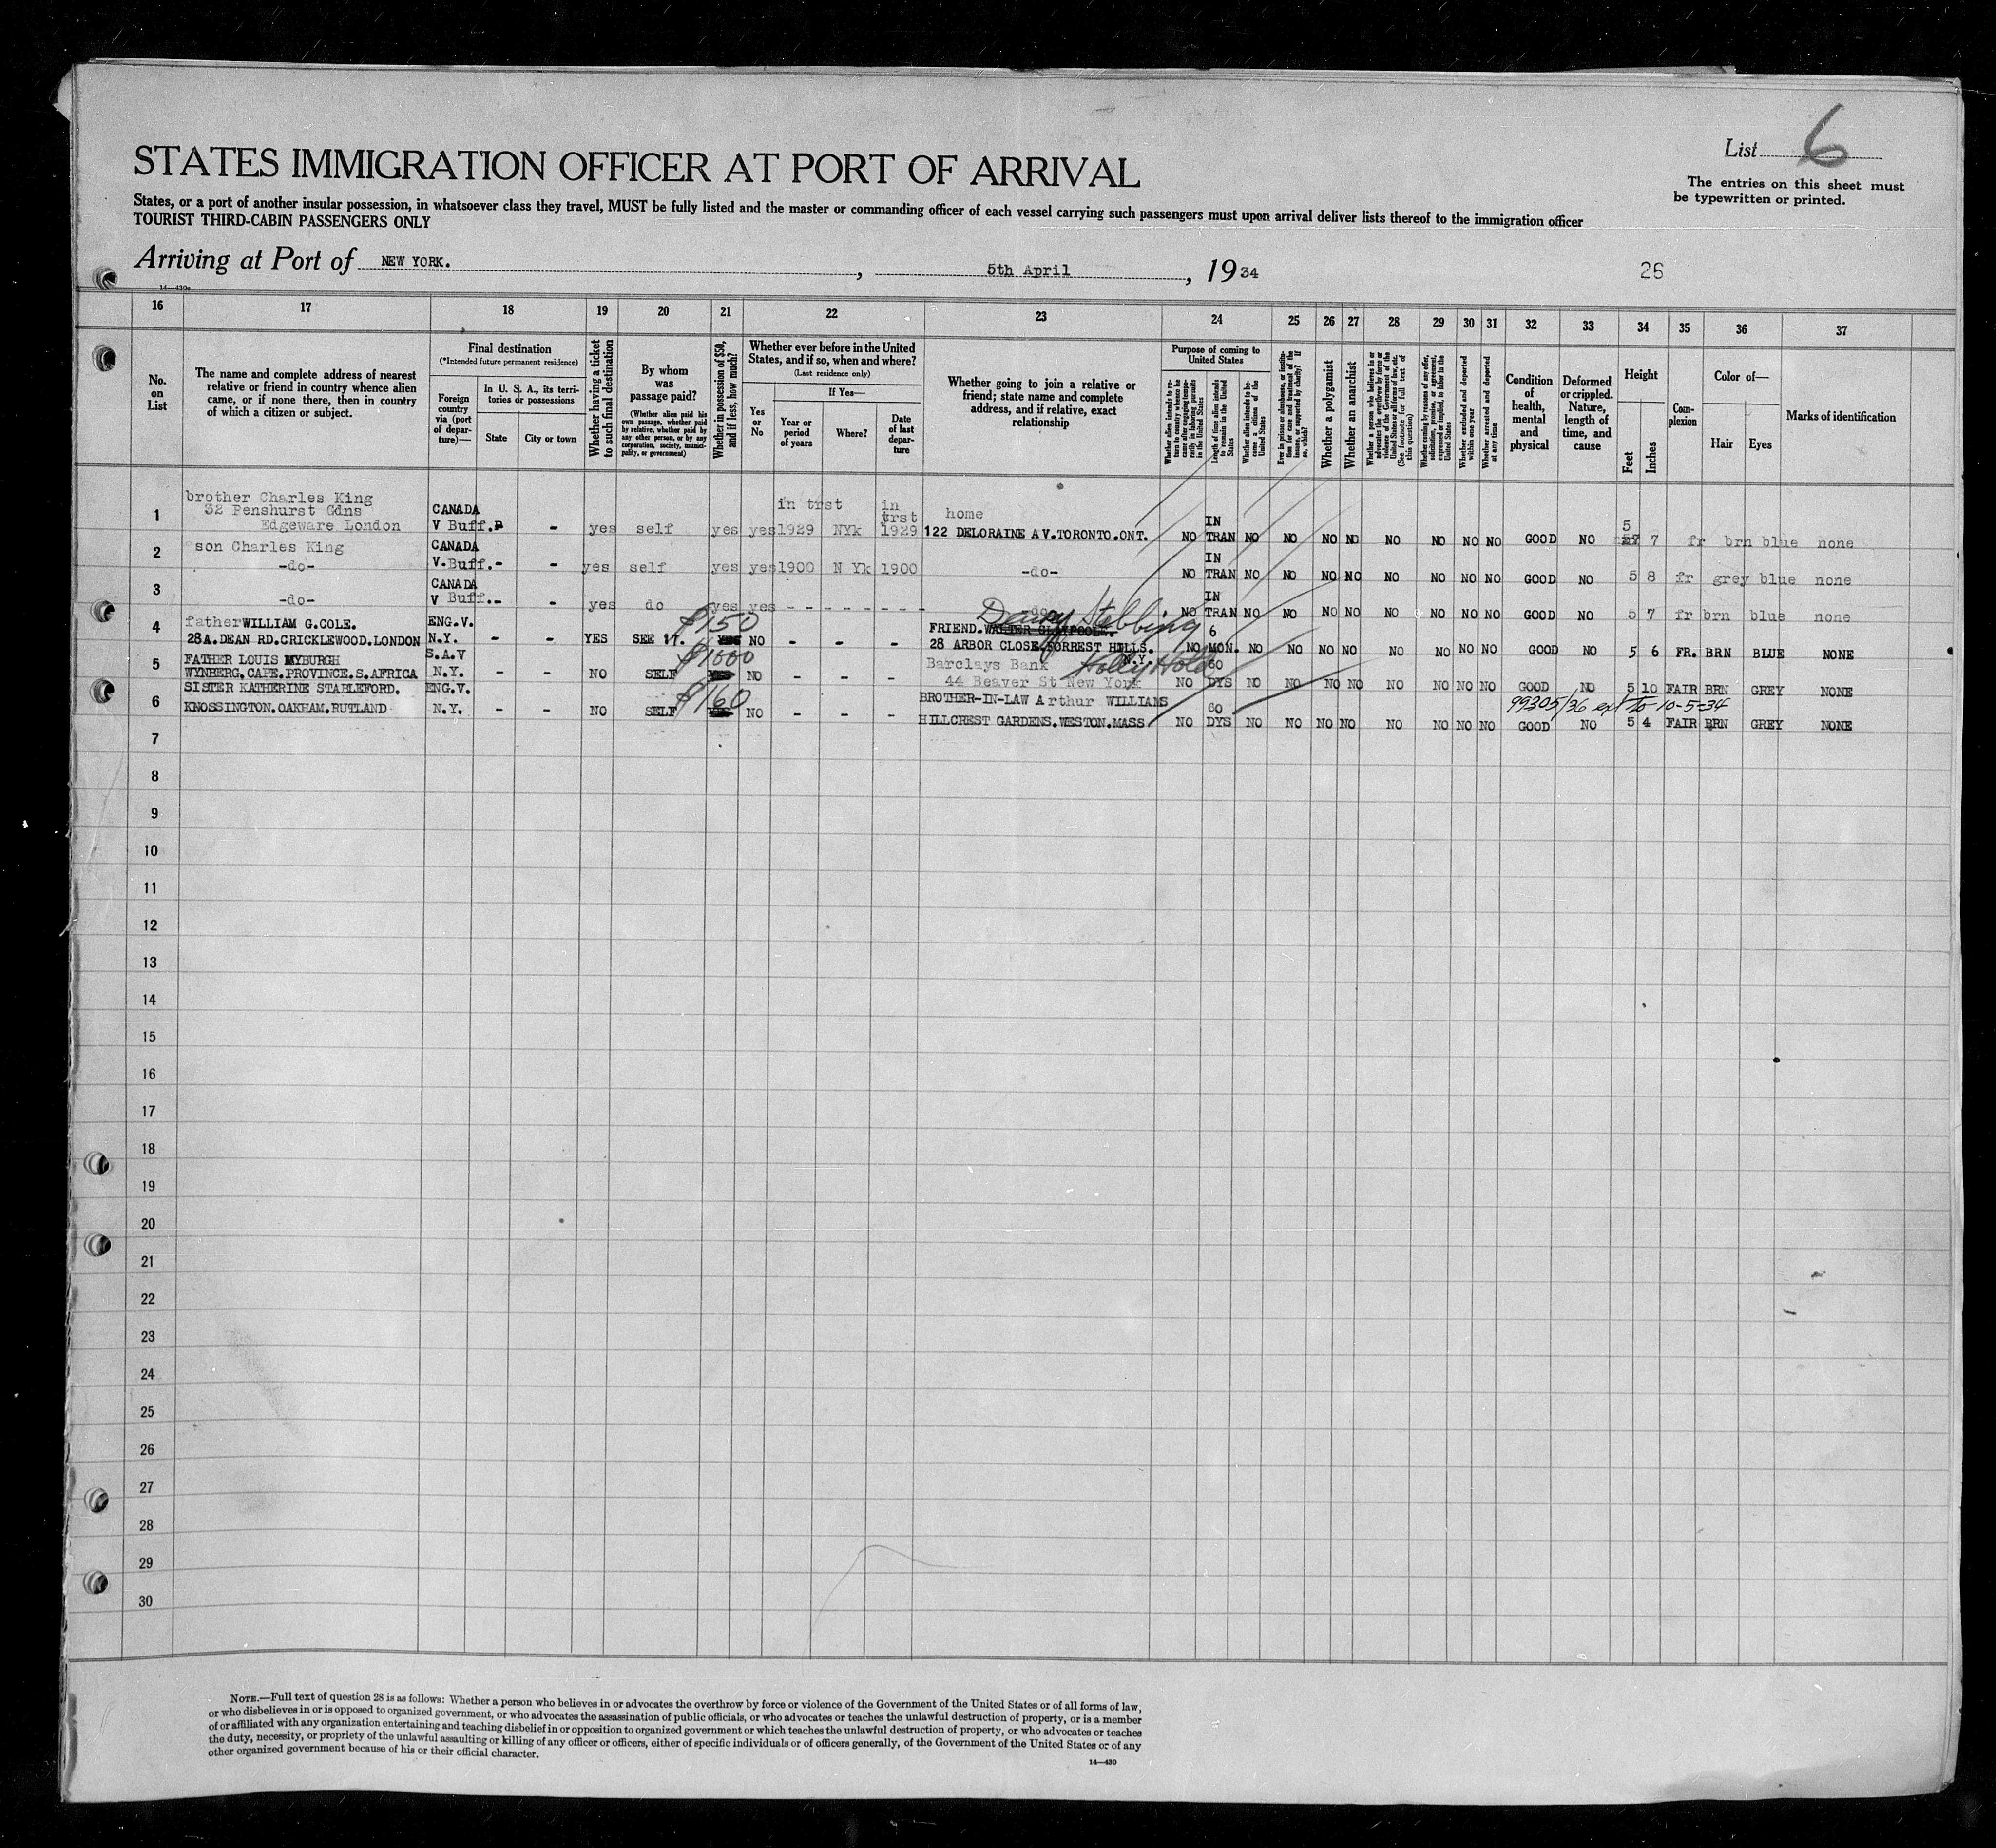 List 6
STATES IMMIGRATION OFFICER AT PORT OF ARRIVAL
The entries on this sheet must
be typewritten or printed.
States, or a port of another insular possession, in whatsoever class they travel, MUST be fully listed and the master or commanding officer of each vessel carrying such passengers must upon arrival deliver lists thereof to the immigration officer
TOURIST THIRD-CABIN PASSENGERS ONLY
Arriving at Port of NEW YORK. , 5th April , 19 34
26
14—430c
16 17 18 19 20 21 22 23 24 25 26 27 28 29 30 31 32 33 34 35 36 37
No. on List
The name and complete address of nearest
relative or friend in country whence alien
came, or if none there, then in country
of which a citizen or subject.
Final destination
(*Intended future permanent residence)
Foreign country via (port of departure)—
In U. S. A., its territories or possessions
State
City or town
Whether having a ticket to such final destination
By whom was passage paid?
(Whether alien paid his own passage, whether paid by relative, whether paid by any other person, or by any corporation, society, municipality, or government)
Whether in possession of $50, and if less, how much?
Whether ever before in the United States, and if so, when and where?
(Last residence only)
Yes or No
If Yes—
Year or period of years
Where?
Date of last departure
Whether going to join a relative or
friend; state name and complete
address, and if relative, exact
relationship
Purpose of coming to United States
Whether alien intends to return to country whence he came after engaging temporarily in laboring pursuits in the United States
Length of time alien intends to remain in the United States
Whether alien intends to become a citizen of the United States
Ever in prison or almshouse, or institution for care and treatment of the insane, or supported by charity? If so, which?
Whether a polygamist
Whether an anarchist
Whether a person who believes in or advocates the overthrow by force or violence of the Government of the United States or all forms of law, etc. (See footnote for full text of this question)
Whether coming by reasons of any offer, solicitation, promise, or agreement, expressed or implied, to labor in the United States
Whether excluded and deported within one year
Whether arrested and deported at any time
Condition of health, mental and physical
Deformed or crippled. Nature, length of time, and cause
Height
Feet
Inches
Complexion
Color of—
Hair
Eyes
Marks of identification
1 brother Charles King
32 Penshurst Gdns
Edgeware London
CANADA V Buff. - yes self yes yes in trst 1929 NYk in trst 1929 home 122 DELORAINE AV.TORONTO.ONT. NO IN TRAN NO NO NO NO NO NO NO NO GOOD NO 5 7 fr brn blue none
2 son Charles King
-do-
CANADA V.Buff.- - yes self yes yes 1900 N Yk 1900 -do- NO IN TRAN NO NO NO NO NO NO NO NO GOOD NO 5 8 fr grey blue none
3 -do-
CANADA V Buff.- - yes do yes yes - - - - - - -do- NO IN TRAN NO NO NO NO NO NO NO NO GOOD NO 5 7 fr brn blue none
4 father WILLIAM G.COLE.
28A.DEAN RD.CRICKLEWOOD.LONDON
ENG.V. N.Y. - - YES SEE 17. $150 YES NO - - - FRIEND. Stebbing
28 ARBOR CLOSE.FORREST HILLS. N.Y. NO 6 MON. NO NO NO NO NO NO NO NO GOOD NO 5 6 FR. BRN BLUE NONE
5 FATHER LOUIS MYBURGH
WYNBERG.CAPE.PROVINCE.S.AFRICA
S.A.V N.Y. - - NO SELF $1000 YES NO - - - Barclays Bank
44 Beaver St New York NO 60 DYS NO NO NO NO NO NO NO NO GOOD NO 5 10 FAIR BRN GREY NONE
6 SISTER KATHERINE STAPLEFORD.
KNOSSINGTON.OAKHAM.RUTLAND
ENG.V. N.Y. - - NO SELF $160 YES NO - - - BROTHER-IN-LAW Arthur WILLIAMS
HILLCREST GARDENS.WESTON.MASS NO 60 DYS NO NO NO NO NO NO NO NO GOOD NO 5 4 FAIR BRN GREY NONE
99305/36 ext to 10-5-34
7
8
9
10
11
12
13
14
15
16
17
18
19
20
21
22
23
24
25
26
27
28
29
30
NOTE.—Full text of question 28 is as follows: Whether a person who believes in or advocates the overthrow by force or violence of the Government of the United States or of all forms of law,
or who disbelieves in or is opposed to organized government, or who advocates the assassination of public officials, or who advocates or teaches the unlawful destruction of property, or is a member
of or affiliated with any organization entertaining and teaching disbelief in or opposition to organized government or which teaches the unlawful destruction of property, or who advocates or teaches
the duty, necessity, or propriety of the unlawful assaulting or killing of any officer or officers, either of specific individuals or of officers generally, of the Government of the United States or of any
other organized government because of his or their official character.
14—430